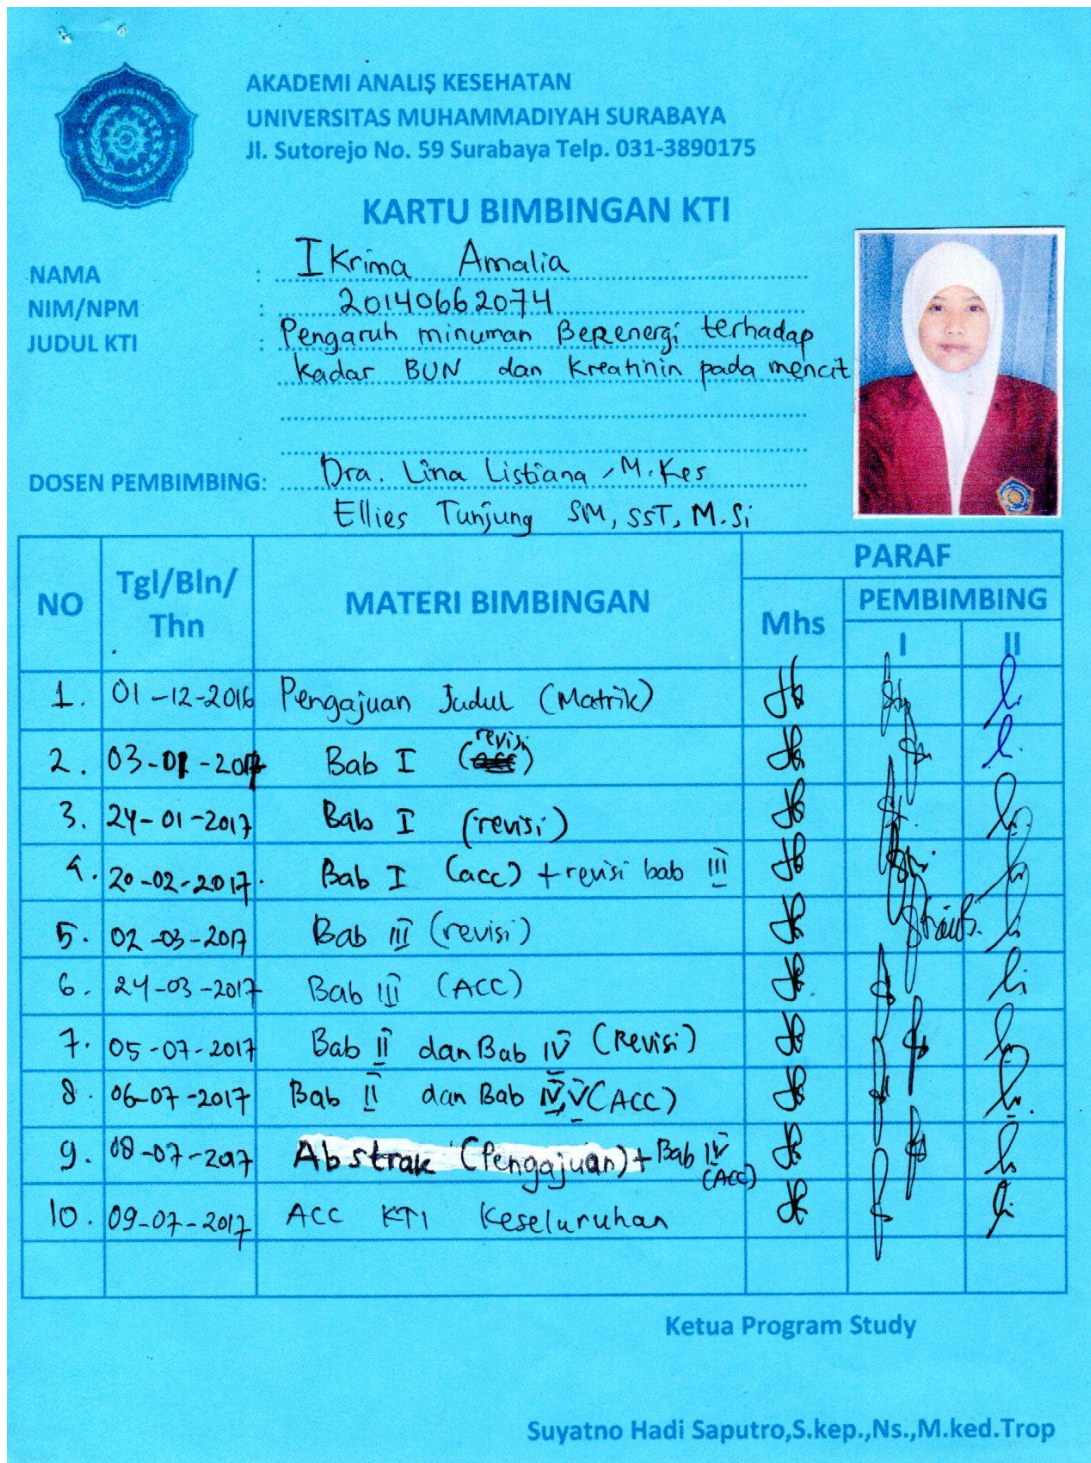 AKADEMI ANALIS KESEHATAN
UNIVERSITAS MUHAMMADIYAH SURABAYA
Jl. Sutorejo No. 59 Surabaya Telp. 031-3890175
KARTU BIMBINGAN KTI
NAMA : Ikrima Amalia
NIM/NPM : 20140662074
JUDUL KTI : Pengaruh minuman Berenergi terhadap
kadar BUN dan Kreatinin pada mencit
DOSEN PEMBIMBING: Dra. Lina Listiana, M.Kes
Ellies Tunjung SM, SST, M.Si
NO Tgl/Bln/Thn MATERI BIMBINGAN PARAF
Mhs PEMBIMBING
I II
1. 01-12-2016 Pengajuan Judul (Matrik)
2. 03-01-2017 Bab I (revisi)
3. 24-01-2017 Bab I (revisi)
4. 20-02-2017. Bab I (acc) + revisi bab III
5. 02-03-2017 Bab III (revisi)
6. 24-03-2017 Bab III (ACC)
7. 05-07-2017 Bab II dan Bab IV (Revisi)
8. 06-07-2017 Bab II dan Bab IV, V (ACC)
9. 08-07-2017 Abstrak (Pengajuan) + Bab IV (Acc)
10. 09-07-2017 ACC KTI Keseluruhan
Ketua Program Study
Suyatno Hadi Saputro,S.kep.,Ns.,M.ked.Trop